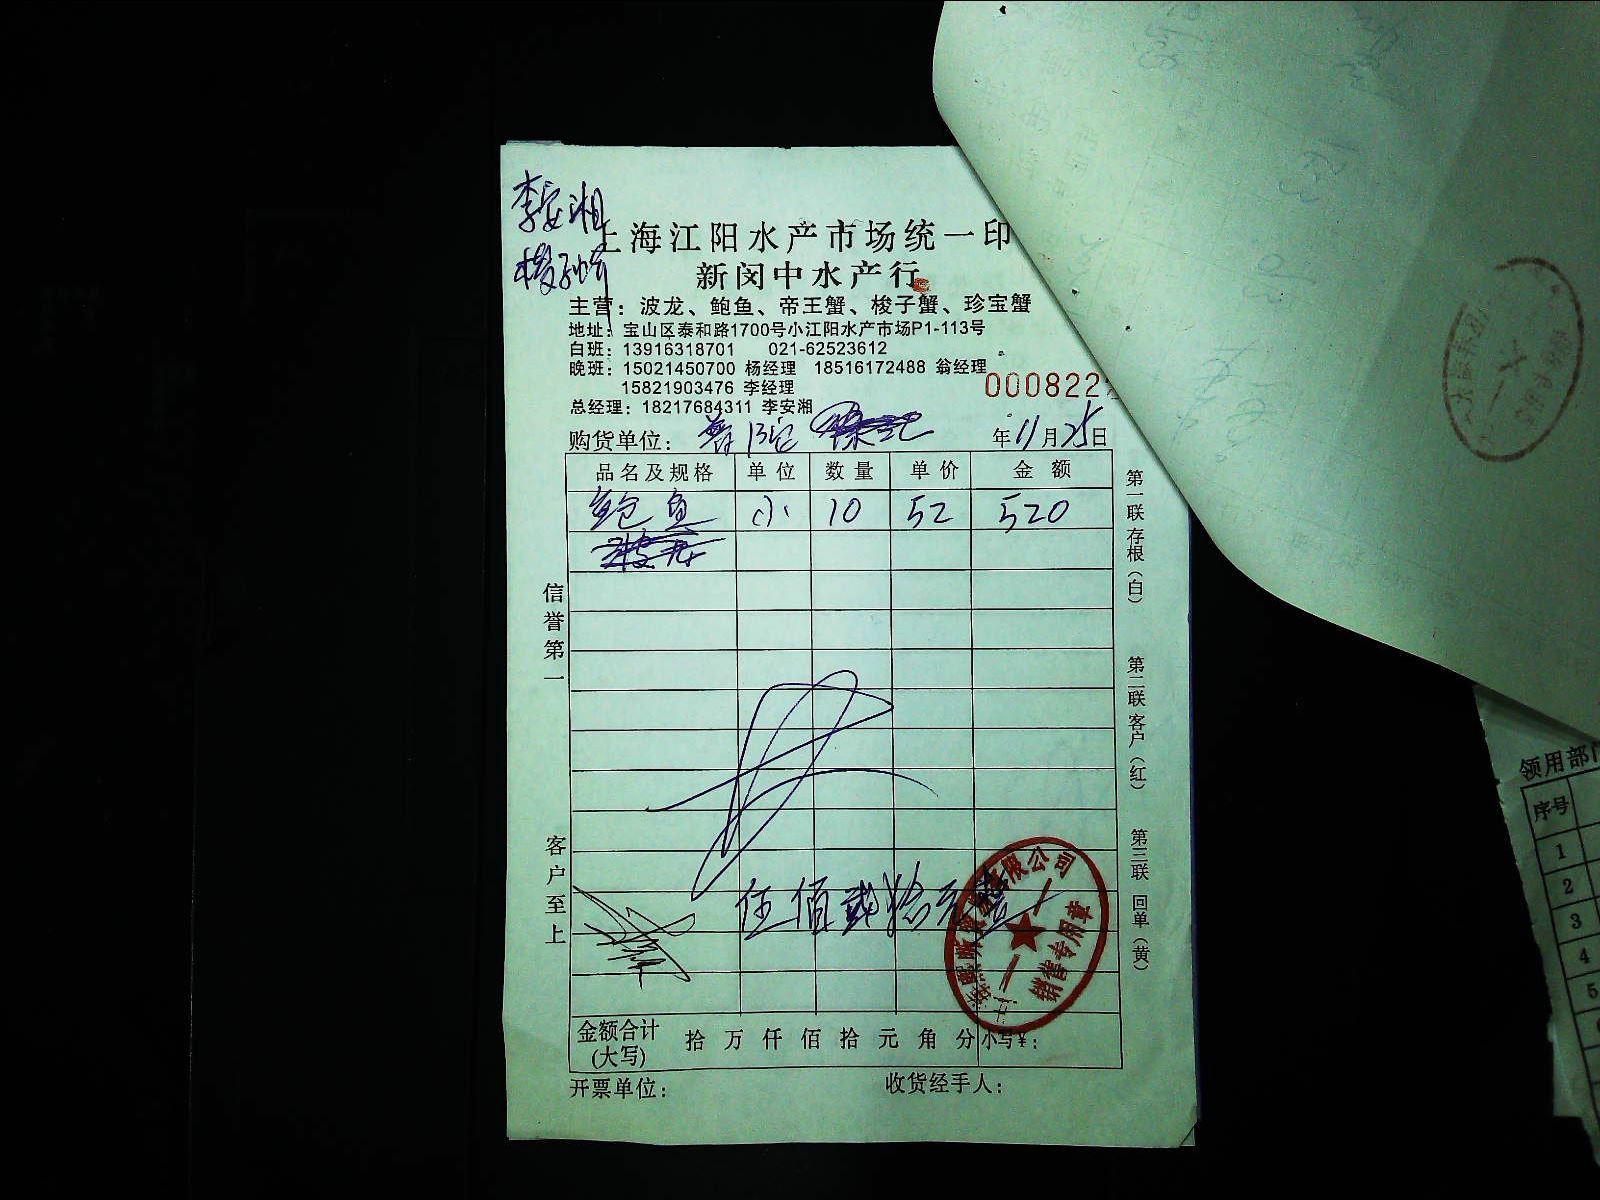 李安湘
上海江阳水产市场统一印
新闵中水产行
主营：波龙、鲍鱼、帝王蟹、梭子蟹、珍宝蟹
地址：宝山区泰和路1700号小江阳水产市场P1-113号
白班：13916318701 021-62523612
晚班：15021450700 杨经理 18516172488 翁经理
15821903476 李经理
0008222
总经理：18217684311 李安湘
购货单位：普陀 年11月25日
品名及规格 单位 数量 单价 金额
鲍鱼 小 10 52 520
信誉第一
客户至上
第一联 存根（白）
第二联 客户（红）
第三联 回单（黄）
伍佰贰拾元整
有限公司
销售专用章
金额合计(大写) 拾 万 仟 佰 拾 元 角 分 小写￥：
开票单位： 收货经手人：
领用部门
序号
1
2
3
4
5